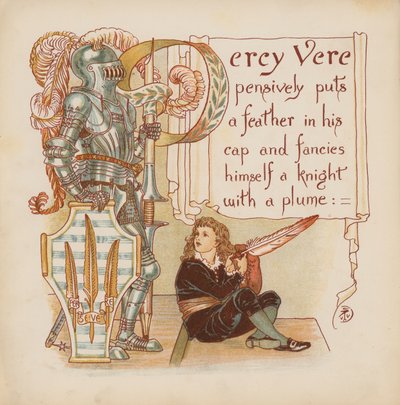 Percy Vere
pensively puts
a feather in his
cap and fancies
himself a knight
with a plume :=
SEVE RE